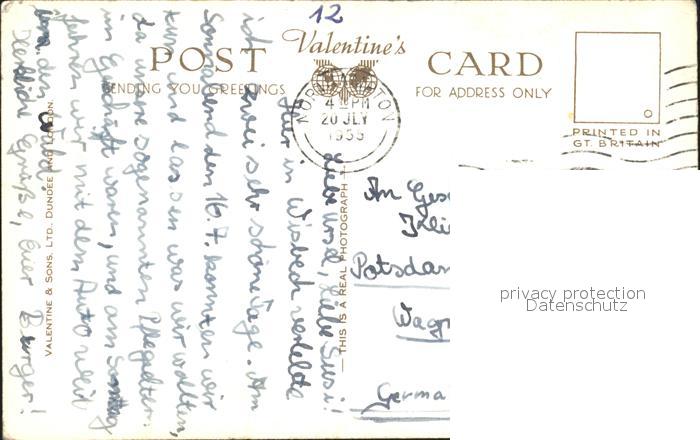 12
POST Valentine's CARD
SENDING YOU GREETINGS
FOR ADDRESS ONLY
4 PM
20 JLY
1955
PRINTED IN
GT. BRITAIN
VALENTINE & SONS, LTD. DUNDEE AND LONDON.
— THIS IS A REAL PHOTOGRAPH —
Liebe Ursel, liebe Susi!
Hier in Wisbech verlebte
ich zwei sehr schöne Tage. Am
Sonnabend den 16.7. konnten wir
tun und lassen was wir wollten,
da unsere sogenannten Pflegeltern
im Geschäft waren, und am Sonntag
fuhren wir mit dem Auto weit
Herzliche Grüße, Euer Burger!
An
Potsdam
Germa
privacy protection
Datenschutz